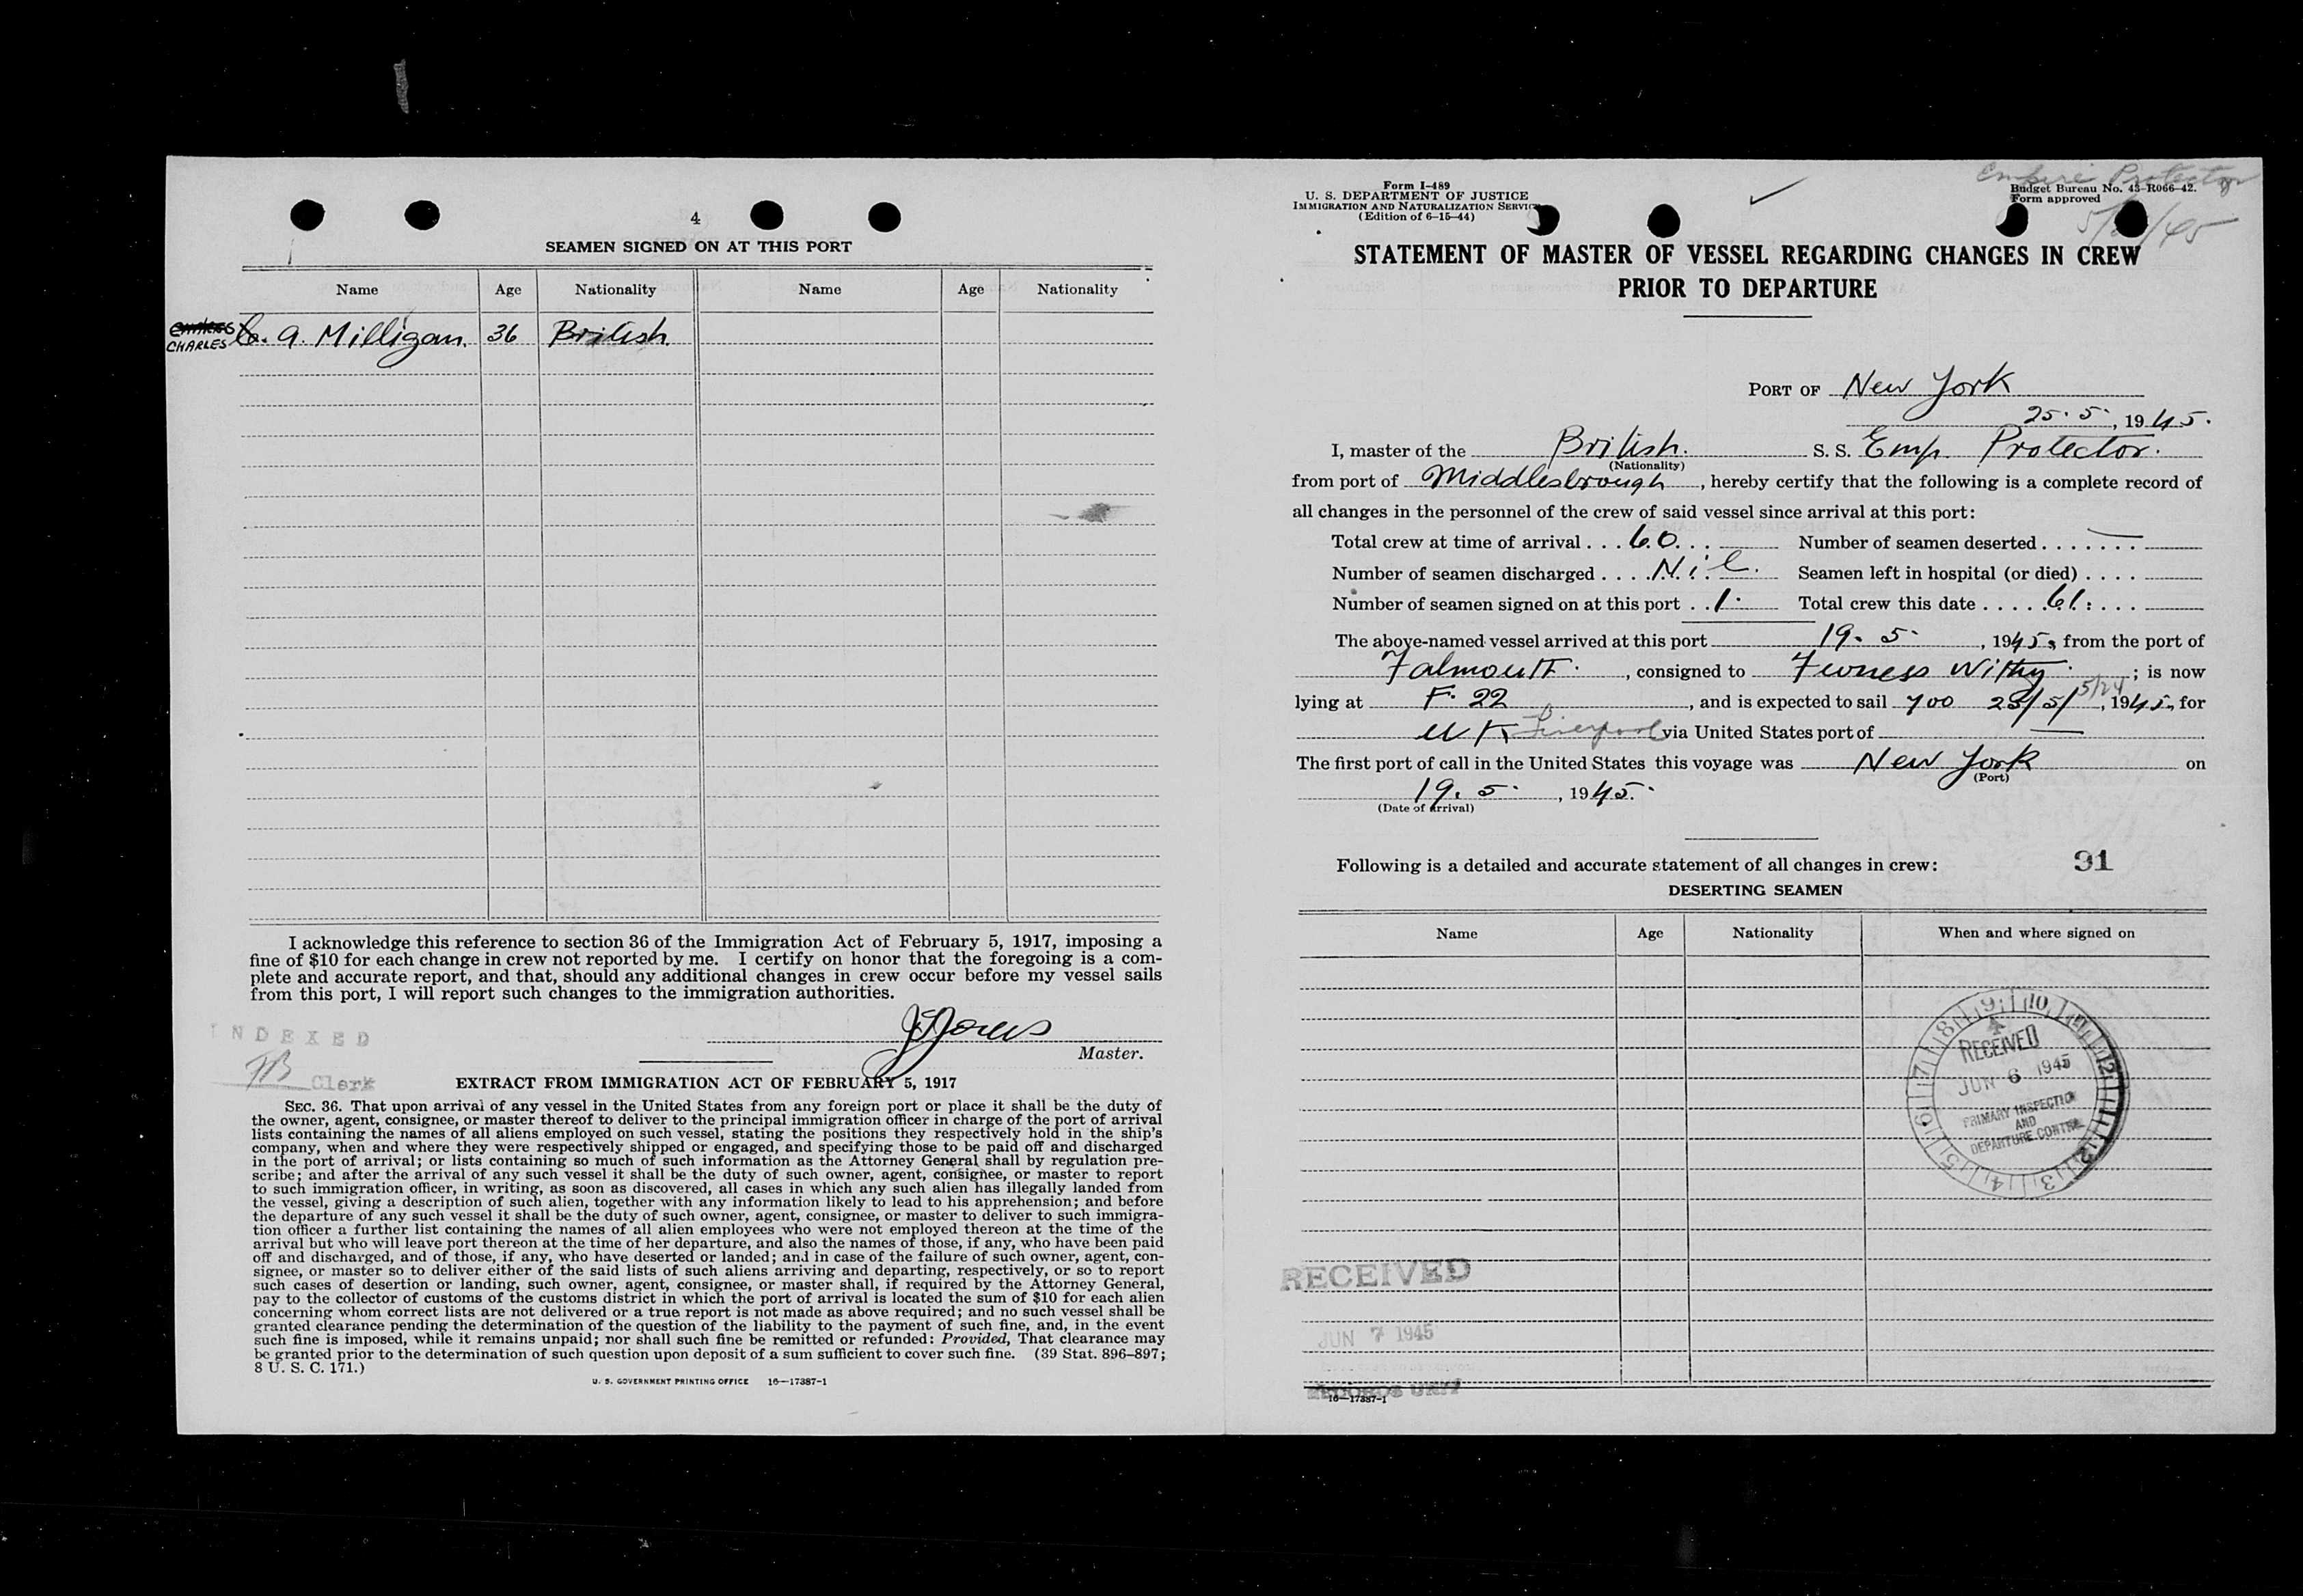 4
SEAMEN SIGNED ON AT THIS PORT
Name Age Nationality Name Age Nationality
CHARLES C. A. Milligan. 36 British.
I acknowledge this reference to section 36 of the Immigration Act of February 5, 1917, imposing a
fine of $10 for each change in crew not reported by me. I certify on honor that the foregoing is a com-
plete and accurate report, and that, should any additional changes in crew occur before my vessel sails
from this port, I will report such changes to the immigration authorities.
INDEXED
Master.
Clerk
EXTRACT FROM IMMIGRATION ACT OF FEBRUARY 5, 1917
SEC. 36. That upon arrival of any vessel in the United States from any foreign port or place it shall be the duty of
the owner, agent, consignee, or master thereof to deliver to the principal immigration officer in charge of the port of arrival
lists containing the names of all aliens employed on such vessel, stating the positions they respectively hold in the ship's
company, when and where they were respectively shipped or engaged, and specifying those to be paid off and discharged
in the port of arrival; or lists containing so much of such information as the Attorney General shall by regulation pre-
scribe; and after the arrival of any such vessel it shall be the duty of such owner, agent, consignee, or master to report
to such immigration officer, in writing, as soon as discovered, all cases in which any such alien has illegally landed from
the vessel, giving a description of such alien, together with any information likely to lead to his apprehension; and before
the departure of any such vessel it shall be the duty of such owner, agent, consignee, or master to deliver to such immigra-
tion officer a further list containing the names of all alien employees who were not employed thereon at the time of the
arrival but who will leave port thereon at the time of her departure, and also the names of those, if any, who have been paid
off and discharged, and of those, if any, who have deserted or landed; and in case of the failure of such owner, agent, con-
signee, or master so to deliver either of the said lists of such aliens arriving and departing, respectively, or so to report
such cases of desertion or landing, such owner, agent, consignee, or master shall, if required by the Attorney General,
pay to the collector of customs of the customs district in which the port of arrival is located the sum of $10 for each alien
concerning whom correct lists are not delivered or a true report is not made as above required; and no such vessel shall be
granted clearance pending the determination of the question of the liability to the payment of such fine, and, in the event
such fine is imposed, while it remains unpaid; nor shall such fine be remitted or refunded: Provided, That clearance may
be granted prior to the determination of such question upon deposit of a sum sufficient to cover such fine. (39 Stat. 896-897;
8 U. S. C. 171.)
U. S. GOVERNMENT PRINTING OFFICE 16—17387-1
Empire Protector
Form I-489
U. S. DEPARTMENT OF JUSTICE
IMMIGRATION AND NATURALIZATION SERVICE
(Edition of 6-15-44)
Budget Bureau No. 43-R066-42.
Form approved
STATEMENT OF MASTER OF VESSEL REGARDING CHANGES IN CREW
PRIOR TO DEPARTURE
PORT OF New York
25. 5. , 1945.
I, master of the British. S. S. Emp. Protector.
(Nationality)
from port of Middlesbrough, hereby certify that the following is a complete record of
all changes in the personnel of the crew of said vessel since arrival at this port:
Total crew at time of arrival . . . 60. Number of seamen deserted . . . . . . . —
Number of seamen discharged . . . . Nil. Seamen left in hospital (or died) . . . .
Number of seamen signed on at this port . . 1. Total crew this date . . . . . 61. . . .
The above-named vessel arrived at this port 19. 5. , 1945, from the port of
Falmouth. , consigned to Furness Withy. ; is now
lying at F. 22 , and is expected to sail 700 25/5/ 5/24, 1945, for
UK Liverpool via United States port of —
The first port of call in the United States this voyage was New York on
(Port)
19. 5. , 1945.
(Date of arrival)
Following is a detailed and accurate statement of all changes in crew: 91
DESERTING SEAMEN
Name Age Nationality When and where signed on
RECEIVED
JUN 6 1945
PRIMARY INSPECTION
AND
DEPARTURE CONTROL
RECEIVED
JUN 7 1945
RECORDS UNIT
16—17387-1